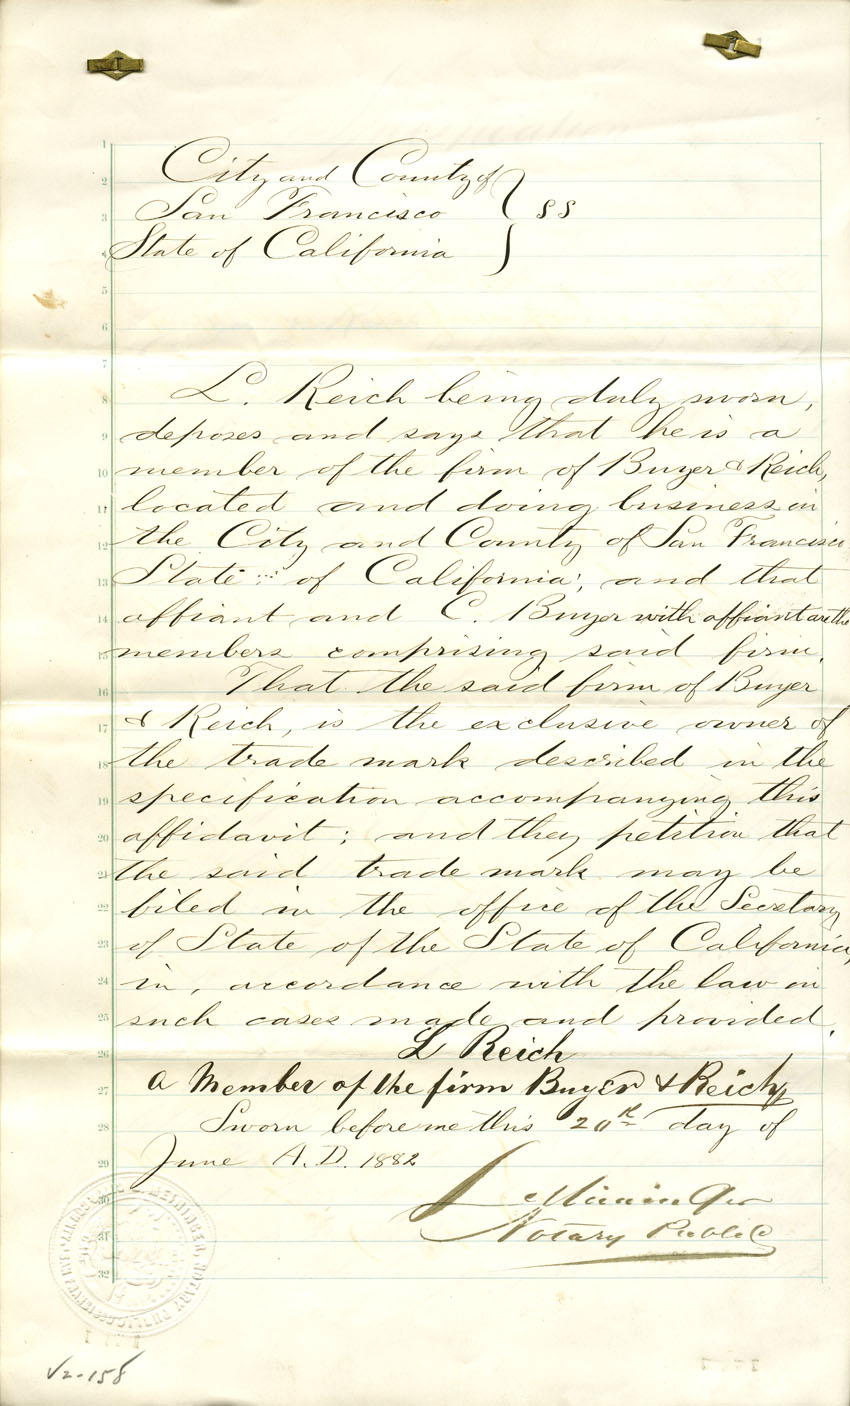 City and County of
San Francisco } SS
State of California
L. Reich being duly sworn,
deposes and says that he is a
member of the firm of Buyer & Reich,
located and doing business in
the City and County of San Francisco
State of California; and that
affiant and C. Buyer with affiant are the
members comprising said firm.
That the said firm of Buyer
& Reich, is the exclusive owner of
the trade mark described in the
specification accompanying this
affidavit; and they petition that
the said trade mark may be
filed in the office of the Secretary
of State of the State of California,
in, accordance with the law in
such cases made and provided.
L Reich
a Member of the firm Buyer & Reich
Sworn before me this 20th day of
June A.D. 1882
Notary Public
NOTARY PUBLIC
V2-158